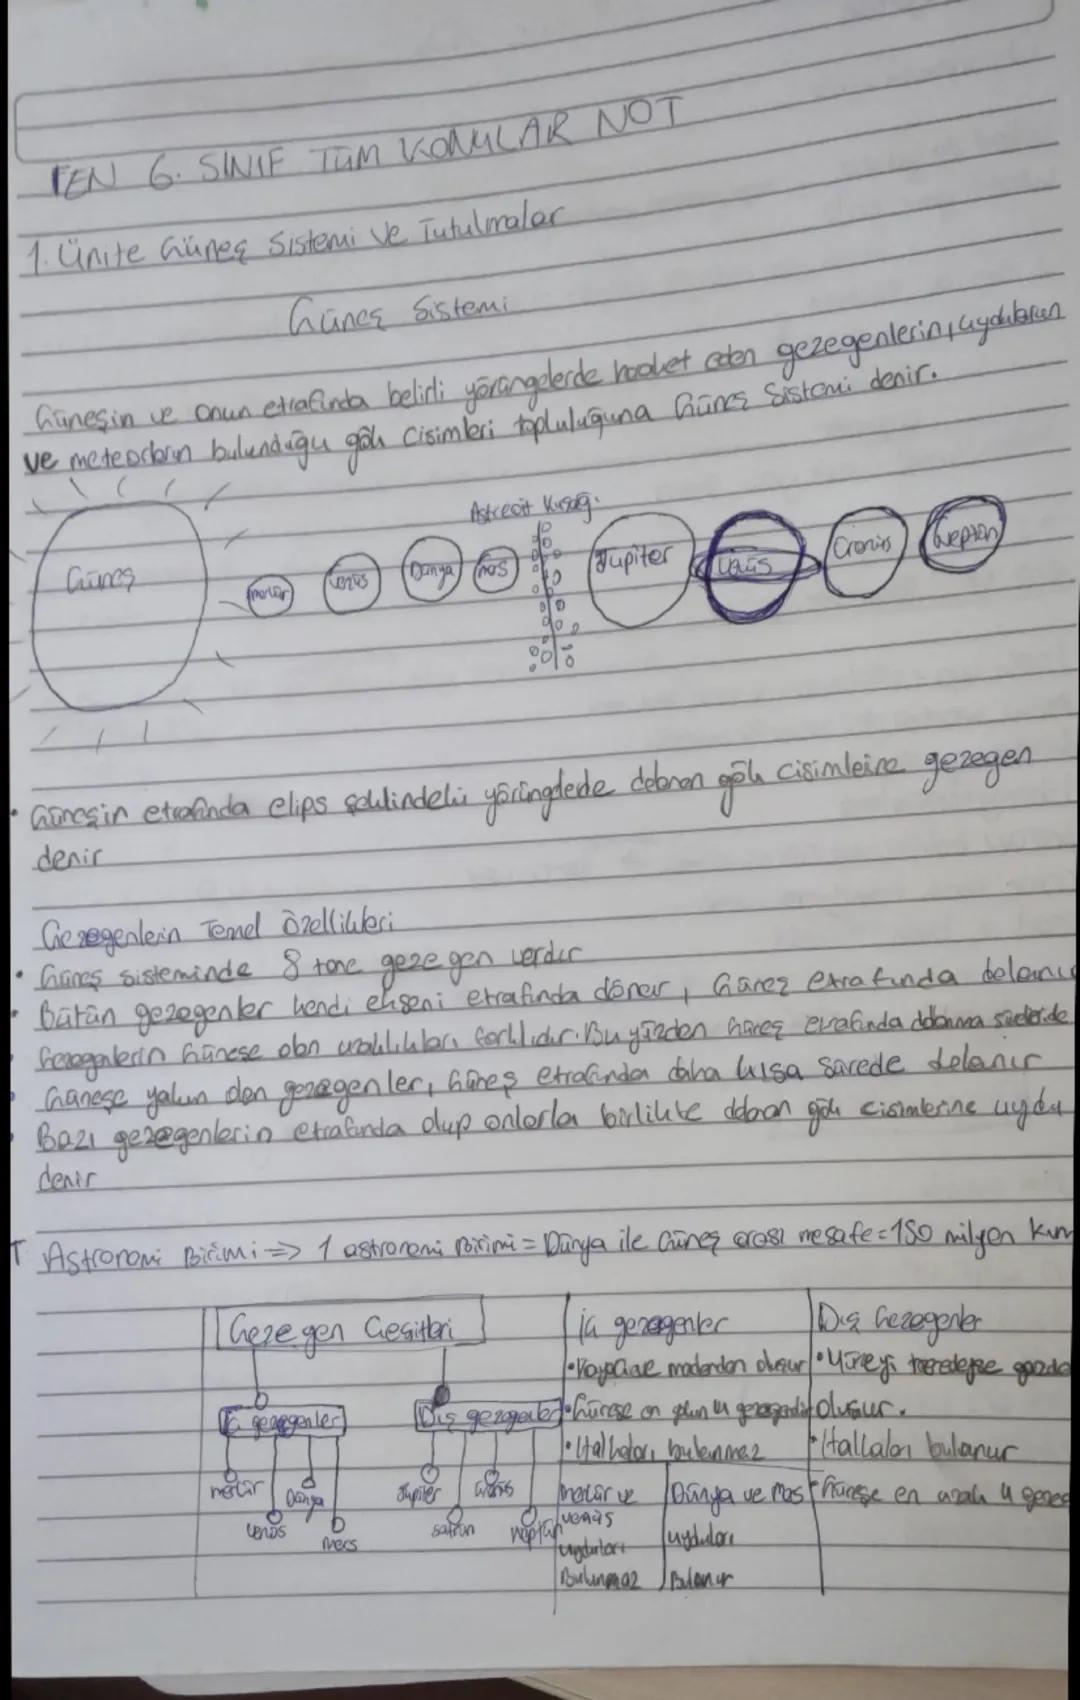 FEN 6. SINIF TÜM KONULAR NOT
1. Ünite Güneş Sistemi ve Tutulmalar
Güneş Sistemi
Güneşin ve onun etrafında belirli yörüngelerde hareket eden gezegenlerin, uyduların
ve meteorların bulunduğu gök cisimleri topluluğuna Güneş Sistemi denir.
Asteroit Kuşağı
Güneş merkür venüs Dünya mars Jupiter Uranüs Neptün
• Güneşin etrafında elips şeklindeki yörüngelede dolanan gök cisimleine gezegen
denir
Gezegenlein Temel Özellikleri
• Güneş sisteminde 8 tane gezegen verdır
• bütün gezegenler kendi ekseni etrafında döner, Günez etrafında dolanır
Gezegenlerin Günese olan uzaklıkları farklıdır. Bu yüzden güneş etrafında dolanma süreleride
Günese yakın olan gezegenler, Güneş etrafında daha kısa sürede dolanır
• Bazı gezegenlerin etrafında olup onlarla birlikte dolaan gök cisimlerine uydu
denir
Astronomi Birimi => 1 astronomi Birimi = Dünya ile Güneş arası mesafe = 150 milyon km
Gezegen Çeşitleri
İç gezegenler
Dış Gezegenler
• Kayaçlar madenden oluşur
• Yüzeyi
İç gezegenler
Dış gezegenler
• Günese en yakın 4 gezegendir
oluşur.
• Halkaları bulunmaz
• Halkaları bulunur
merkür Dünya Jupiter
venüs mars satrün neptün
merkür ve
venüs
uyduları
Bulunmaz
Dünya ve mars
uyduları
Bulunur
• Günese en uzak 4 gezeg